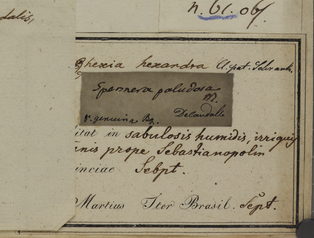 dalis,
n. 61. 06.
Rhexia hexandra
Spennera paludosa
M.
v. genuina Bg. DeCandolle
itat in sabulosis humidis, irriguis
anis prope Sebastianopolin
inciae Sebpt.
Martius Iter Brasil. Sept.